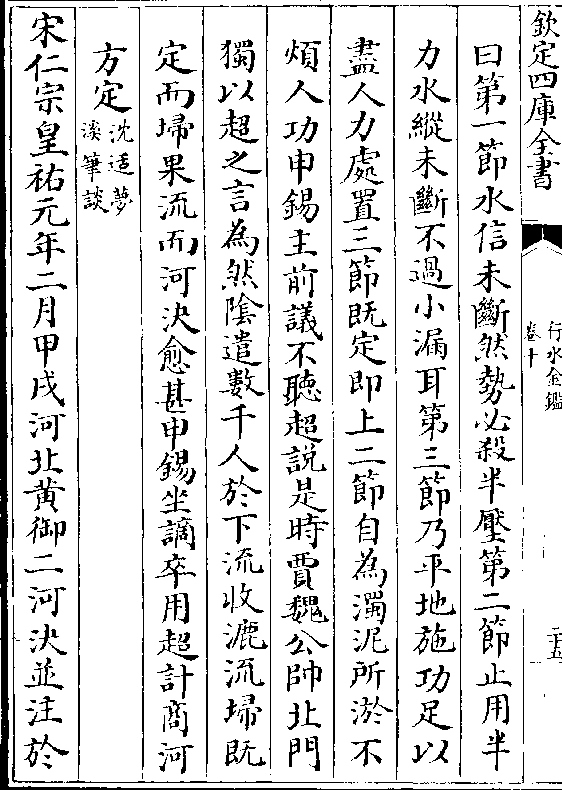 欽定四庫全書
行水金鑑
卷十
二五
曰第一節水信未斷然勢必殺半壓第二節止用半
力水縱未斷不過小漏耳第三節乃平地施功足以
盡人力處置三節既定即上二節自為濁泥所淤不
煩人功申錫主前議不聽超說是時賈魏公帥北門
獨以超之言為然陰遣數千人於下流收漉流埽既
定而埽果流而河決愈甚申錫坐謫卒用超計商河
方定沈适夢
溪筆談
宋仁宗皇祐元年二月甲戌河北黄御二河決並注於